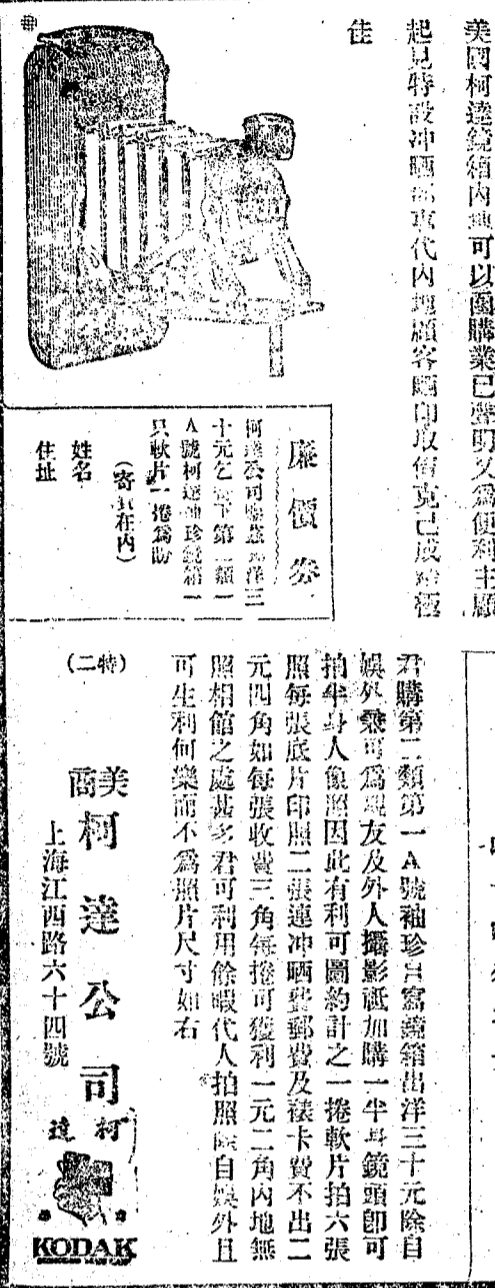 美國柯達鏡箱內地可以函購業已聲明又爲便利主顧
起見特設冲晒部專代內地顧客晒印取價克己成績極
佳
廉價券
柯達公司 洋三
十元乞寄下第二類一
A號柯達袖珍鏡箱一
只軟片一捲爲盼
(寄費在內)
姓名
住址
君購第二類第一A號袖珍自寫鏡箱出洋三十元除自
娛外兼可爲親友及外人攝影祗加購一半身鏡頭卽可
拍半身人像照因此有利可圖約計之一捲軟片拍六張
照每張底片印照二張連冲晒費郵費及裱卡費不出二
元四角如每張收費三角每捲可獲利一元二角內地無
照相館之處甚多君可利用餘暇代人拍照除自娛外且
可生利何樂而不爲照片尺寸如右
(特二)
美商柯達公司
上海江西路六十四號
柯達
KODAK